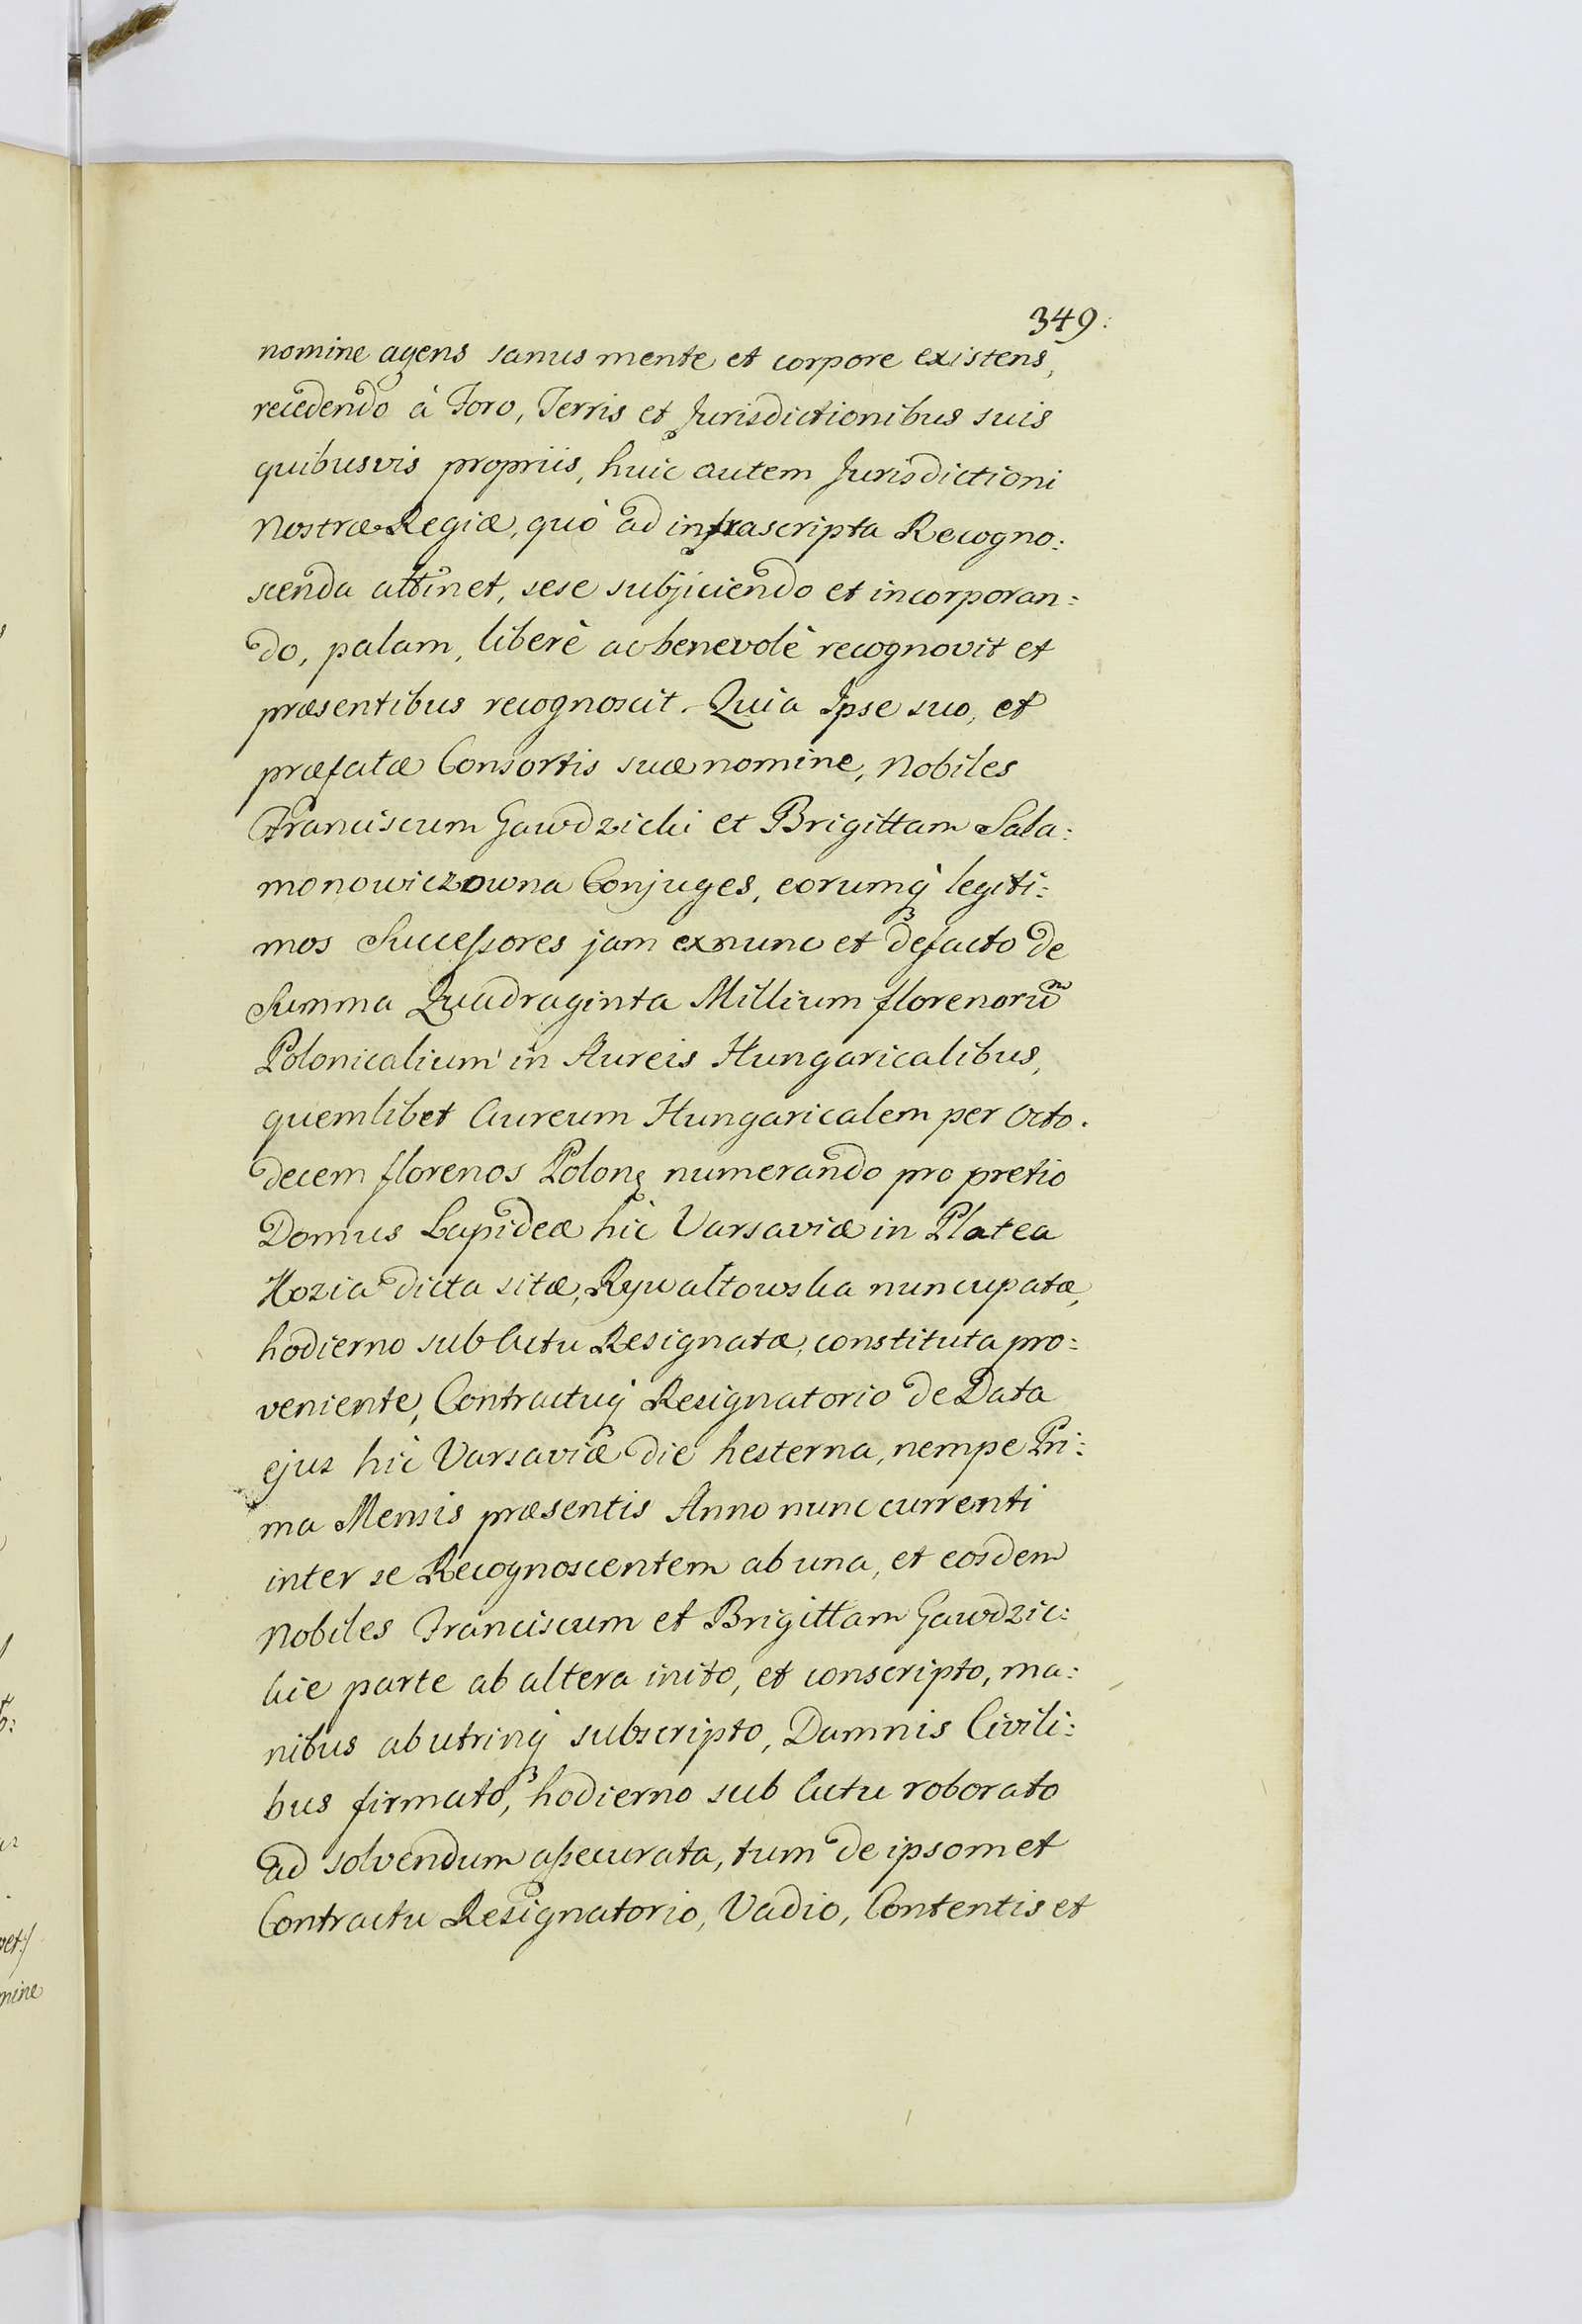 349:
nomine agens sanus mente et corpore existens,
recedendo à Foro, Terris et Jurisdictionibus suis
quibusvis propriis, huic autem Jurisdictioni
Nostræ Regiæ, quò ad infrascripta Recogno:
scenda attinet, sese subjiciendo et incorporan:
do, palam, liberè ac benevolè recognovit et
præsentibus recognoscit. Quia Ipse suo, et
præfatæ Consortis suæ nomine, Nobiles
Franciscum Gawdzicki et Brigittam Sala:
monowiczowna Conjuges, eorumq́ legiti:
mos Successores jam exnunc et defacto de
Summa Quadraginta Millium florenorum̃
Polonicalium in Aureis Hungaricalibus,
quemlibet Aureum Hungaricalem per Octo.
decem florenos Polonꝫ numerando pro pretio
Domus Lapideæ hic Varsaviæ in Platea
Hozia dicta sitæ, Rywaltowska nuncupatæ,
hodierno sub Actu Resignatæ, constituta pro:
veniente, Contractuq́ Resignatorio de Data
ejus hic Varsaviæ die hesterna, nempe Pri:
ma Mensis præsentis Anno nunc currenti
inter se Recognoscentem ab una, et eosdem
Nobiles Franciscum et Brigittam Gawdzic:
kie parte ab altera inito, et conscripto, ma:
nibus ab utrinq́ subscripto, Damnis Civili:
bus firmato, hodierno sub Actu roborato
ad solvendum assecurata, tum de ipsomet
Contractu Resignatorio, Vadio, Contentis et